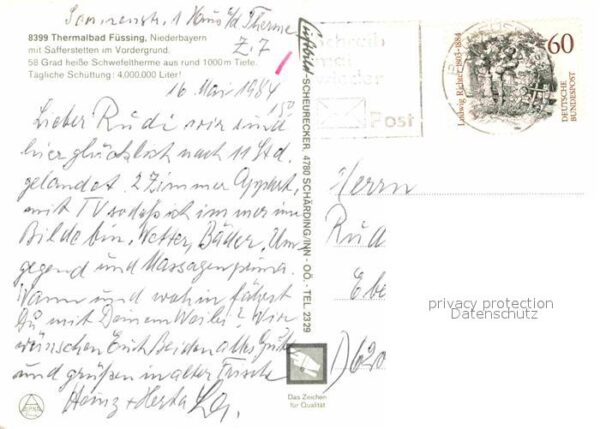 Sonnenstr. 1 Haus a/d Therme
Z. 7
8399 Thermalbad Füssing, Niederbayern
mit Safferstetten im Vordergrund.
58 Grad heiße Schwefeltherme aus rund 1000 m Tiefe.
Tägliche Schüttung: 4,000.000 Liter!
16. Mai 1984
Lieber Rudi wir sind
hier glücklich nach 11 Std.
gelandet. 2 Zimmer Appart.
mit TV sodaß ich immer im
Bilde bin. Wetter, Bäder, Um-
gegend und Massagen prima.
Wann und wohin fährst
Du mit Deinem Weibe? Wir
wünschen Euch Beiden alles Gute
und grüßen in alter Frische
Heinz + Herta
Luftbild-SCHEURECKER, 4780 SCHÄRDING/INN - OÖ. - TEL. 2329
Schreib
mal
wieder
Post
Ludwig Richter 1803-1884
60
DEUTSCHE
BUNDESPOST
Herrn
Rud
Ebe
D 620
privacy protection
Datenschutz
Das Zeichen
für Qualität